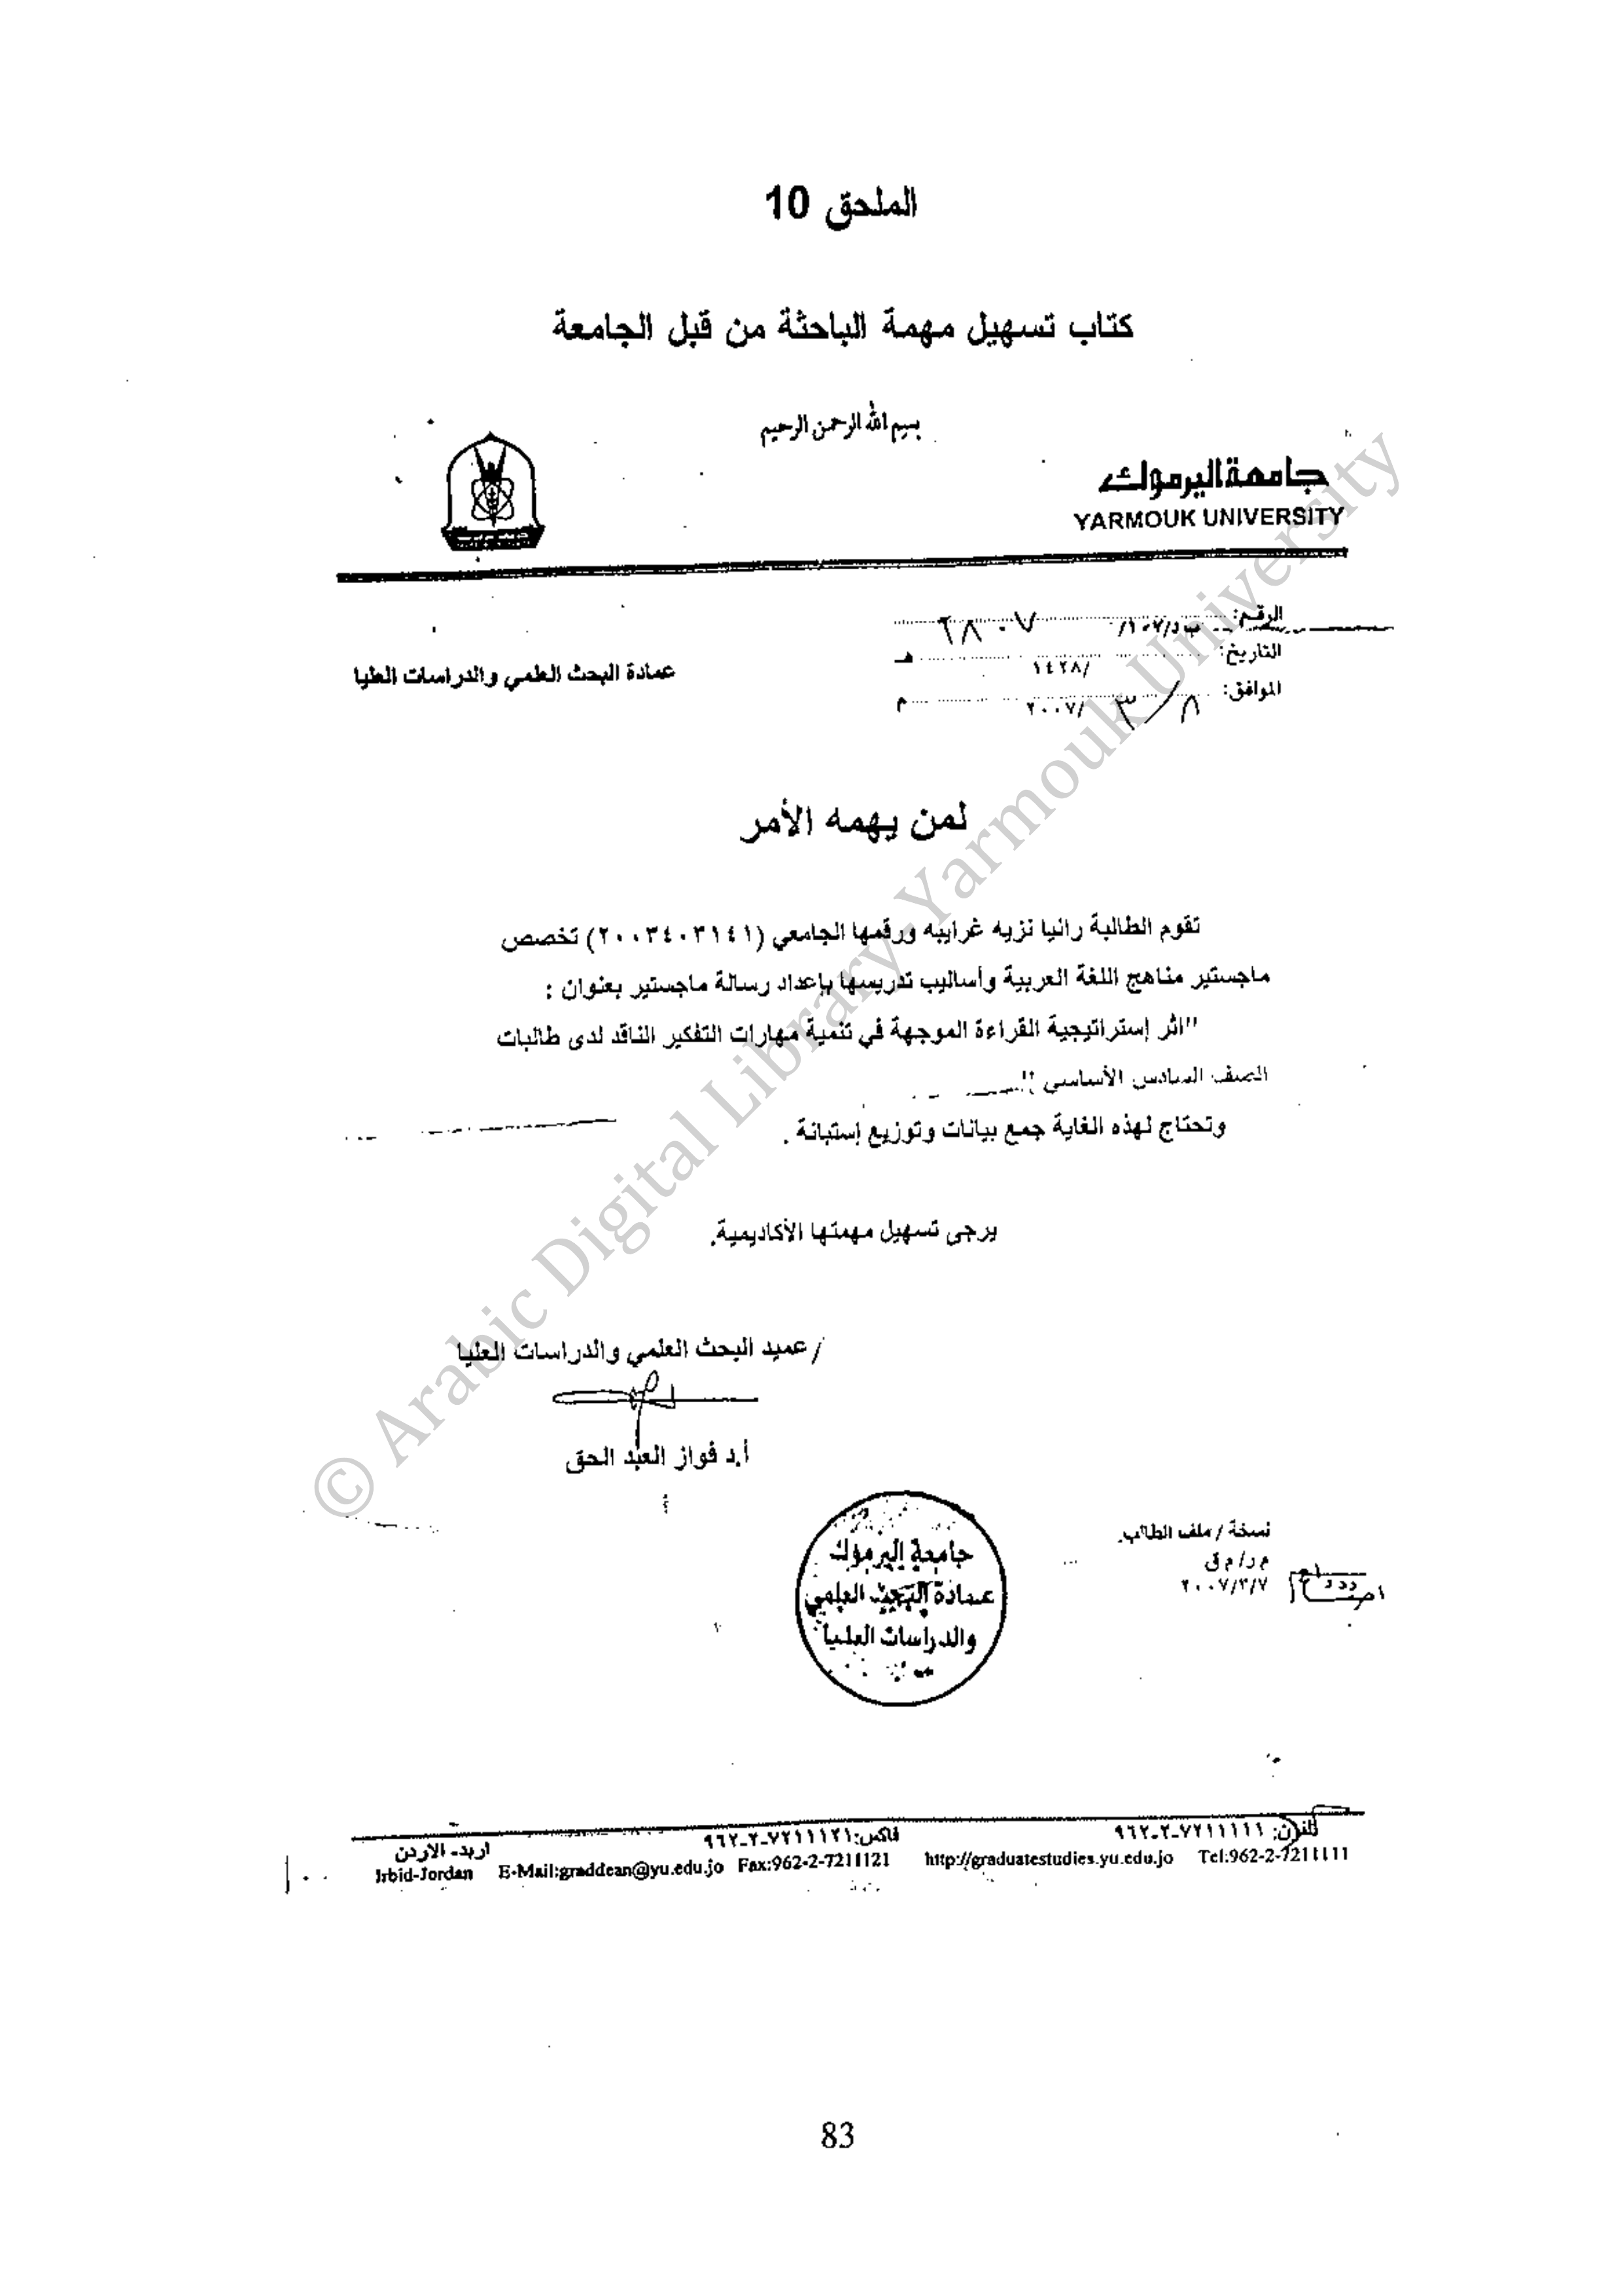 الملحق 10
كتاب تسهيل مهمة الباحثة من قبل الجامعة
بسم الله الرحمن الرحيم
جامعة اليرموك
YARMOUK UNIVERSITY
الرقم: ب د/١٠٧/ ٢٨٠٧
التاريخ: /١٤٢٨ هـ
الموافق: ٨/٣/٢٠٠٧ م
عمادة البحث العلمي والدراسات العليا
لمن يهمه الأمر
تقوم الطالبة رانيا نزيه غرايبه ورقمها الجامعي (٢٠٠٣٤٠٣١٤١) تخصص
ماجستير مناهج اللغة العربية وأساليب تدريسها بإعداد رسالة ماجستير بعنوان :
"اثر إستراتيجية القراءة الموجهة في تنمية مهارات التفكير الناقد لدى طالبات
الصف السادس الأساسي "
وتحتاج لهذه الغاية جمع بيانات وتوزيع إستبانة .
يرجى تسهيل مهمتها الأكاديمية.
/ عميد البحث العلمي والدراسات العليا
أ.د فواز العبد الحق
جامعة اليرموك
عمادة البحث العلمي
والدراسات العليا
نسخة / ملف الطالب.
م ر/ م ق
٢٠٠٧/٣/٧
تلفون: ٩٦٢-٢-٧٢١١١١١ فاكس:٩٦٢-٢-٧٢١١١٢١ اربد- الاردن
Irbid-Jordan E-Mail:graddean@yu.edu.jo Fax:962-2-7211121 http://graduatestudies.yu.edu.jo Tel:962-2-7211111
83
© Arabic Digital Library-Yarmouk University